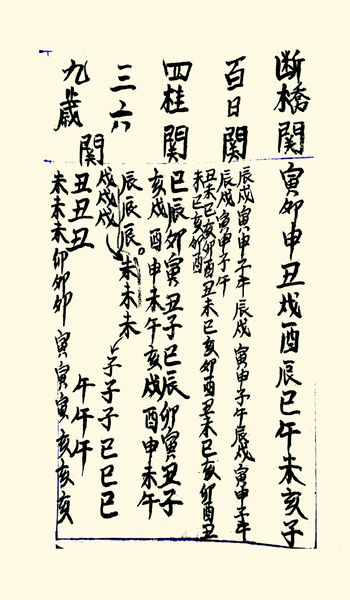 断橋関 寅卯申丑戌酉辰巳午未亥子
百日関
辰戌寅申子午辰戌寅申子午辰戌寅申子午
辰戌寅申子午
丑未巳亥卯酉丑未巳亥卯酉丑未巳亥卯酉丑
未巳亥卯酉
四桂関
巳辰卯寅丑子巳辰卯寅丑子
亥戌酉申未午亥戌酉申未午
三六関
辰辰辰。未未未
戌戌戌 子子子巳巳巳
九歳
丑丑丑 午午午
未未未卯卯卯寅寅寅亥亥亥